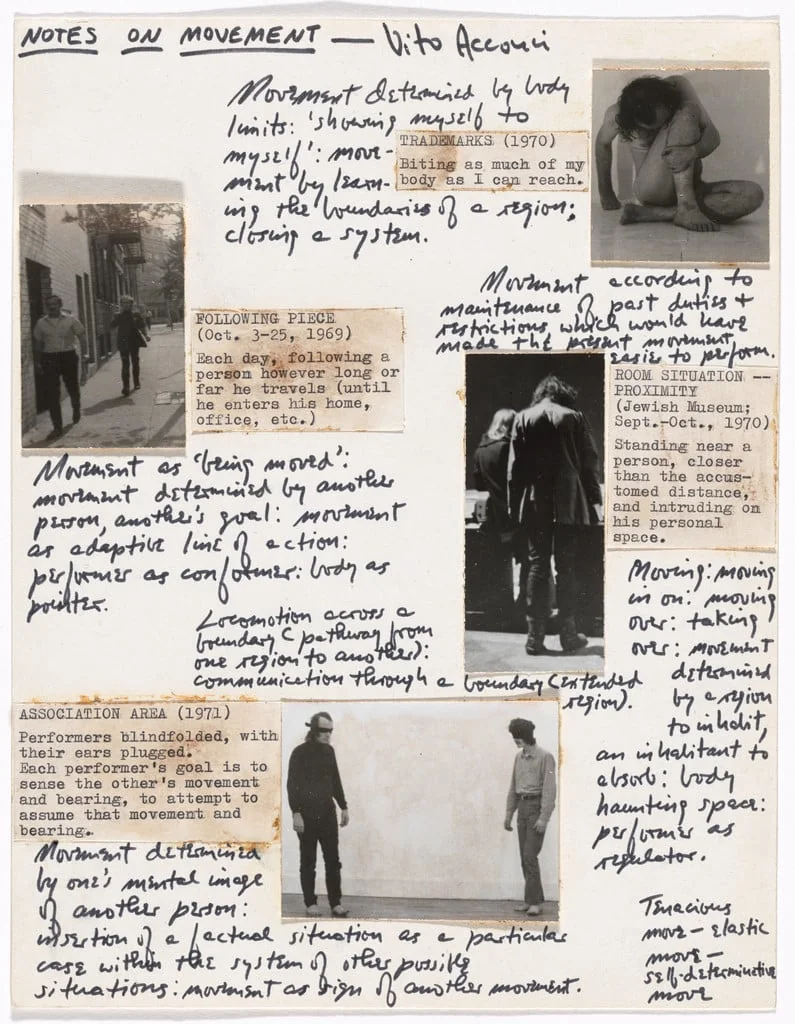 NOTES ON MOVEMENT — Vito Acconci
Movement determined by body
limits: 'showing myself to
myself': move-
ment by learn-
ing the boundaries of a region;
closing a system.
TRADEMARKS (1970)
Biting as much of my
body as I can reach.
Movement according to
maintenance of past duties +
restrictions, which would have
made the present movement
easier to perform.
FOLLOWING PIECE
(Oct. 3-25, 1969)
Each day, following a
person however long or
far he travels (until
he enters his home,
office, etc.)
ROOM SITUATION --
PROXIMITY
(Jewish Museum;
Sept.-Oct., 1970)
Standing near a
person, closer
than the accus-
tomed distance,
and intruding on
his personal
space.
Movement as 'being moved':
movement determined by another
person, another's goal: movement
as adaptive line of action:
performer as conformer: body as
pointer.
Locomotion across a
boundary (pathway from
one region to another):
communication through a boundary (extended
region).
Moving: moving
in on: moving
over: taking
over: movement
determined
by a region
to inhabit,
an inhabitant to
absorb: body
haunting space:
performer as
regulator.
ASSOCIATION AREA (1971)
Performers blindfolded, with
their ears plugged.
Each performer's goal is to
sense the other's movement
and bearing, to attempt to
assume that movement and
bearing.
Movement determined
by one's mental image
of another person:
insertion of a factual situation as a particular
case within the system of other possible
situations: movement as sign of another movement.
Tenacious
move — elastic
move —
self-determinative
move